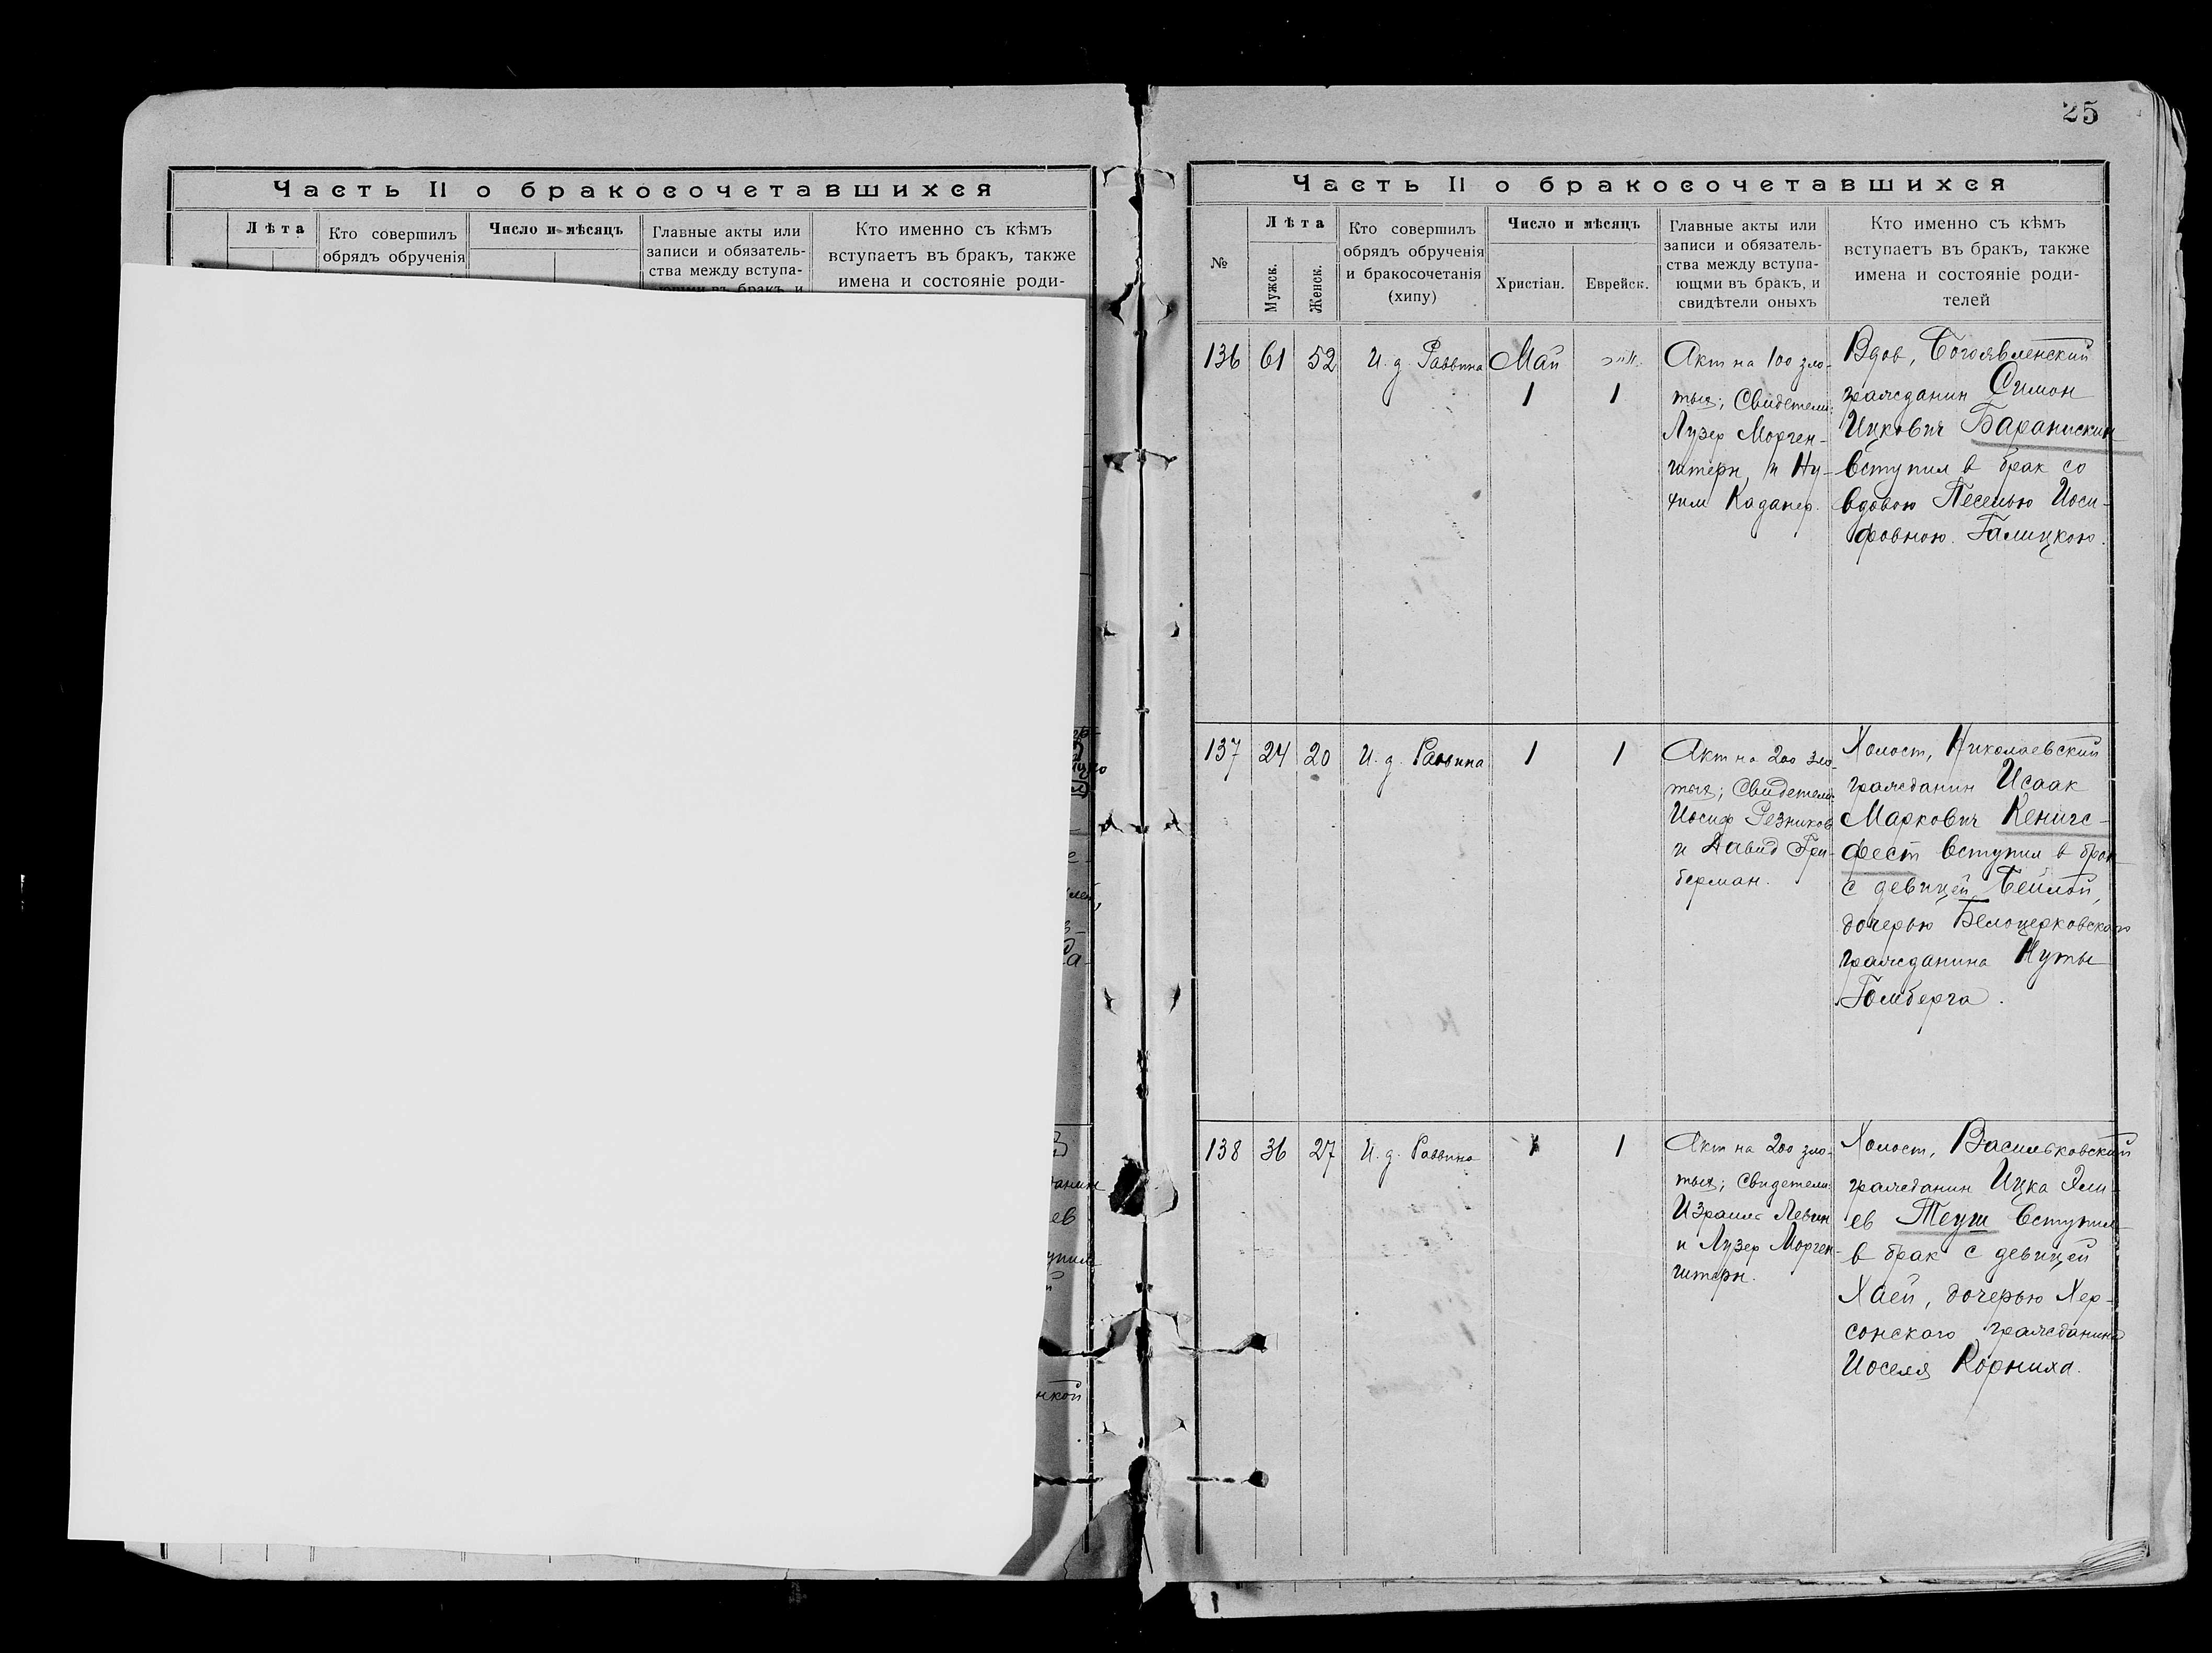 Часть II о бракосочетавшихся
Лѣта
Кто совершилъ
обрядъ обрученія
Число и мѣсяцъ
Главные акты или
записи и обязатель-
ства между вступа-
ющми въ бракъ, и
Кто именно съ кѣмъ
вступаетъ въ бракъ, также
имена и состояніе роди-
25
Часть II о бракосочетавшихся
№
Лѣта
Мужск.
Женск.
Кто совершилъ
обрядъ обрученія
и бракосочетанія
(хипу)
Число и мѣсяцъ
Христіан.
Еврейск.
Главные акты или
записи и обязатель-
ства между вступа-
ющми въ бракъ, и
свидѣтели оныхъ
Кто именно съ кѣмъ
вступаетъ въ бракъ, также
имена и состояніе роди-
телей
136
61
52
И. д. Раввина
Май
1
1
Акт на 100 зло-
тых; Свидетели:
Лузер Морген-
штерн, и Ну-
хим Каданер.
Вдов, Богоявленский
гражданин Симон
Ицкович
вступил в брак со
вдовою Песелью Иоси-
фовною Галицкою.
137
24
20
И. д. Раввина
1
1
Акт на 200 зло-
тых; Свидетели:
Иосиф Резников
и Давид Гри-
берман.
Холост, Николаевский
гражданин Исаак
Маркович Кенигс-
фест вступил в брак
с девицей Бейлой,
дочерью Белоцерковского
гражданина Нуты
Гомберга.
138
36
27
И. д. Раввина
1
1
Акт на 200 зло-
тых; Свидетели:
Израиль Левин
и Лузер Морген-
штерн.
Холост, Васильковский
гражданин Ицка Эли-
ев Теуш вступил
в брак с девицей
Хаей, дочерью Хер-
сонского гражданина
Иоселя Корниха.